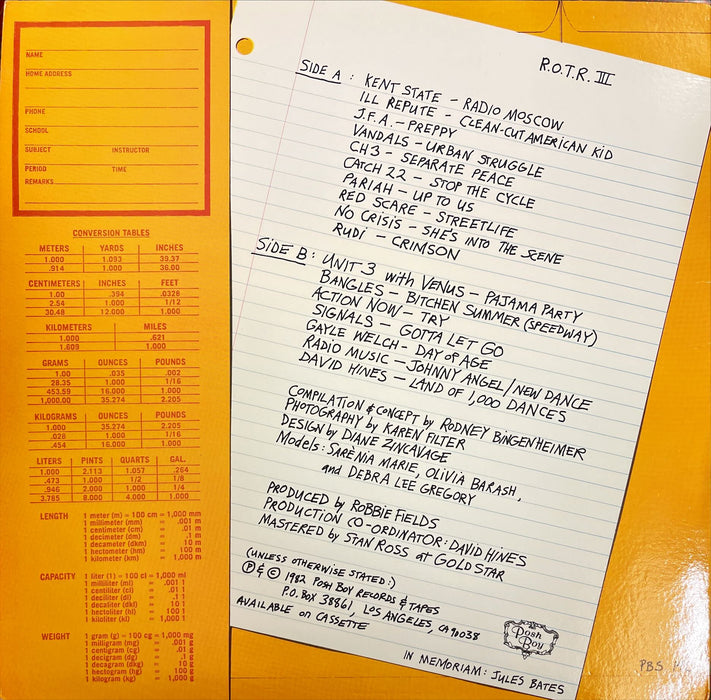 NAME
HOME ADDRESS
PHONE
SCHOOL
SUBJECT INSTRUCTOR
PERIOD TIME
REMARKS
CONVERSION TABLES
METERS YARDS INCHES
1.000 1.093 39.37
.914 1.000 36.00
CENTIMETERS INCHES FEET
1.00 .394 .0328
2.54 1.000 1/12
30.48 12.000 1.000
KILOMETERS MILES
1.000 .621
1.609 1.000
GRAMS OUNCES POUNDS
1.00 .035 .002
28.35 1.000 1/16
453.59 16.000 1.000
1,000.00 35.274 2.205
KILOGRAMS OUNCES POUNDS
1.000 35.274 2.205
.028 1.000 1/16
.454 16.000 1.000
LITERS PINTS QUARTS GAL.
1.000 2.113 1.057 .264
.473 1.000 1/2 1/8
.946 2.000 1.000 1/4
3.785 8.000 4.000 1.000
LENGTH 1 meter (m) = 100 cm = 1,000 mm
1 millimeter (mm) = .001 m
1 centimeter (cm) = .01 m
1 decimeter (dm) = .1 m
1 decameter (dkm) = 10 m
1 hectometer (hm) = 100 m
1 kilometer (km) = 1,000 m
CAPACITY 1 liter (l) = 100 cl = 1,000 ml
1 milliliter (ml) = .001 l
1 centiliter (cl) = .01 l
1 deciliter (dl) = .1 l
1 decaliter (dkl) = 10 l
1 hectoliter (hl) = 100 l
1 kiloliter (kl) = 1,000 l
WEIGHT 1 gram (g) = 100 cg = 1,000 mg
1 milligram (mg) = .001 g
1 centigram (cg) = .01 g
1 decigram (dg) = .1 g
1 decagram (dkg) = 10 g
1 hectogram (hg) = 100 g
1 kilogram (kg) = 1,000 g
R.O.T.R. III
SIDE A : KENT STATE - RADIO MOSCOW
ILL REPUTE - CLEAN-CUT AMERICAN KID
J.F.A. - PREPPY
VANDALS - URBAN STRUGGLE
CH 3 - SEPARATE PEACE
CATCH 22 - STOP THE CYCLE
PARIAH - UP TO US
RED SCARE - STREETLIFE
NO CRISIS - SHE'S INTO THE SCENE
RUDI - CRIMSON
SIDE B : UNIT 3 with VENUS - PAJAMA PARTY
BANGLES - BITCHEN SUMMER (SPEEDWAY)
ACTION NOW - TRY
SIGNALS - GOTTA LET GO
GAYLE WELCH - DAY of AGE
RADIO MUSIC - JOHNNY ANGEL/NEW DANCE
DAVID HINES - LAND OF 1,000 DANCES
COMPILATION & CONCEPT by RODNEY BINGENHEIMER
PHOTOGRAPHY by KAREN FILTER
DESIGN by DIANE ZINCAVAGE
Models : SARENIA MARIE, OLIVIA BARASH,
and DEBRA LEE GREGORY
PRODUCED by ROBBIE FIELDS
PRODUCTION CO-ORDINATOR : DAVID HINES
MASTERED by STAN ROSS at GOLD STAR
(UNLESS OTHERWISE STATED:)
Ⓟ & © 1982 POSH BOY RECORDS & TAPES
P.O. BOX 38861, LOS ANGELES, CA 90038
AVAILABLE on CASSETTE
Posh Boy
IN MEMORIAM : JULES BATES
PBS